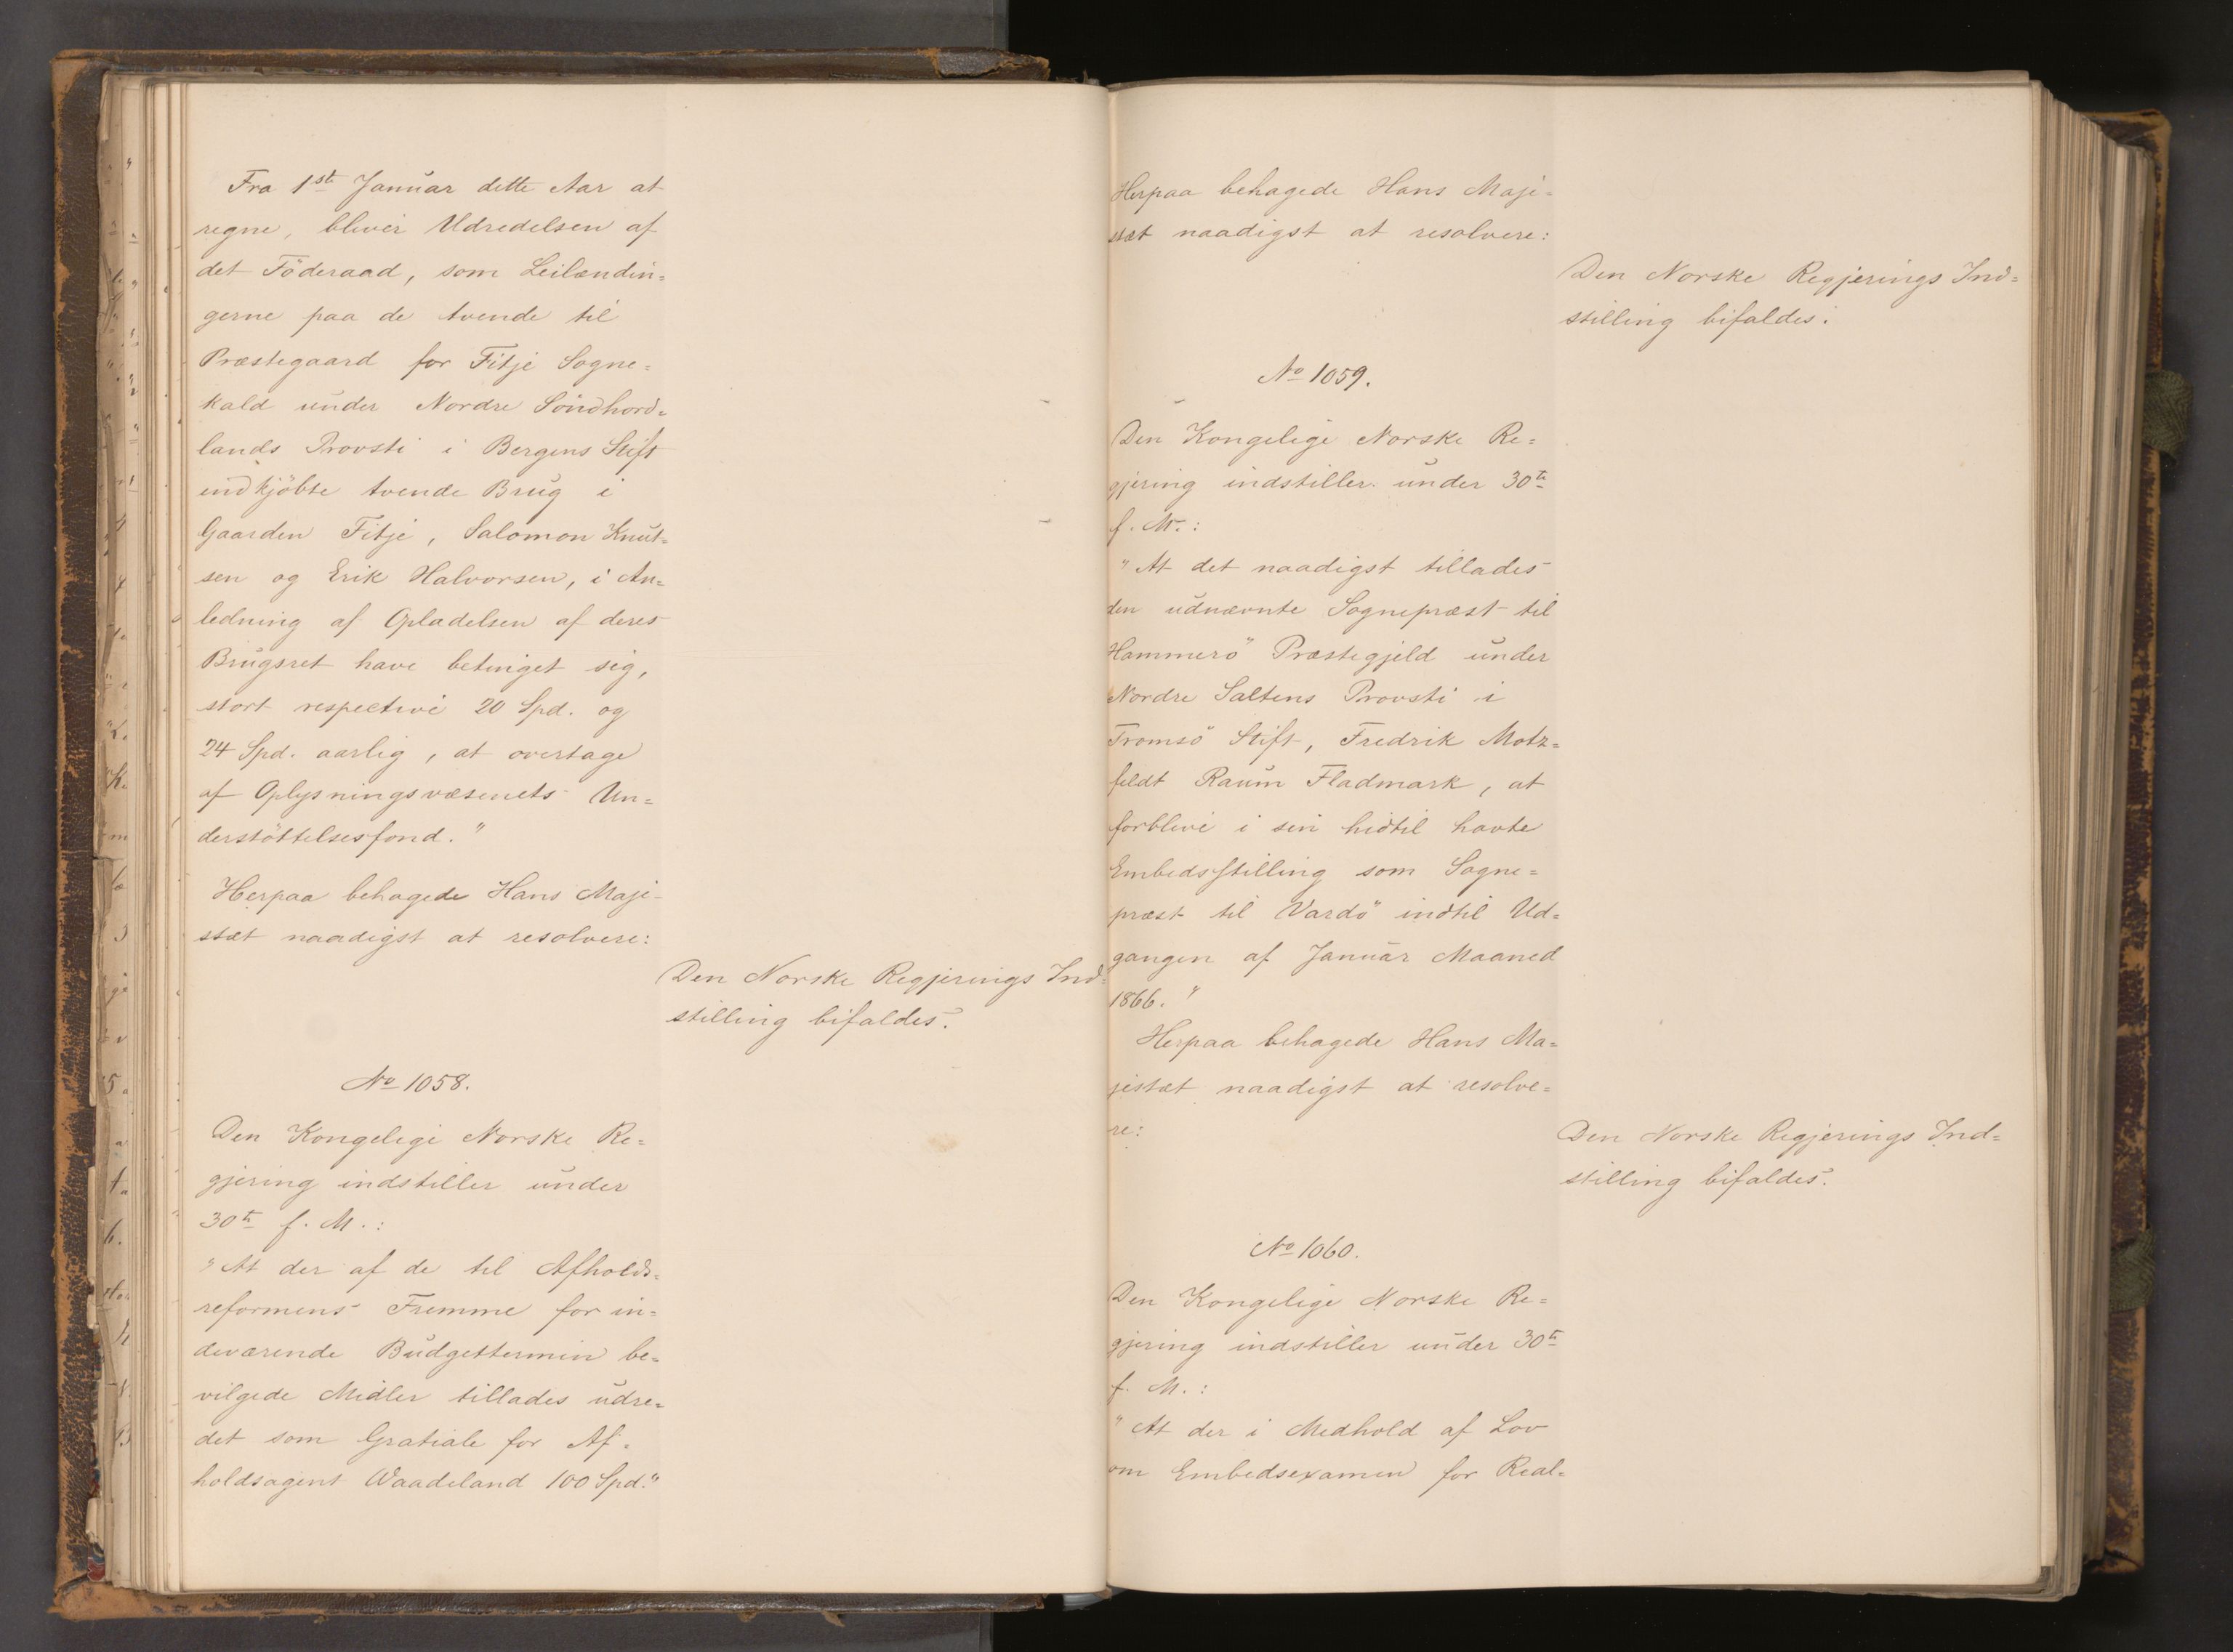 Fra 1ste Januar dette Aar at
regne, bliver Udredelsen af
det Föderaad, som Leilændin=
gerne paa de tvende til
Præstegaard for Fitje Sogne=
kald under Nordre Söndhord=
lands Provsti i Bergens Stift
indkjöbte tvende Brug i
Gaarden Fitje, Salomon Knut=
sen og Erik Halvorsen, i An=
ledning af Opladelsen af deres
Brugsret have betinget sig,
stort respective 20 Spd. og
24 Spd. aarlig, at overtage
af Oplysningsvæsenets Un=
derstöttelsesfond."
Herpaa behagede Hans Maje-
stæt naadigst at resolvere:
Den Norske Regjerings Ind=
stilling bifaldes.
No 1058.
Den Kongelige Norske Re=
gjering indstiller under
30te f. M.:
"At der af de til Afholds=
reformens Fremme for in=
deværende Budgettermin be=
vilgede Midler tillades udre=
det som Gratiale for Af=
holdsagent Waadeland 100 Spd."
Herpaa behagede Hans Maje=
stæt naadigst at resolvere:
Den Norske Regjerings Ind=
stilling bifaldes.
No 1059.
Den Kongelige Norske Re=
gjering indstiller under 30te
f. M.:
"At det naadigst tillades
den udnævnte Sognepræst til
Hammerö Præstegjeld under
Nordre Saltens Provsti i
Tromsö Stift, Fredrik Motz=
feldt Raum Fladmark, at
forblive i sin hidtil havte
Embedsstilling som Sogne=
præst til Vardö indtil Ud=
gangen af Januar Maaned
1866."
Herpaa behagede Hans Ma=
jestæt naadigst at resolve=
re:
Den Norske Regjerings Ind=
stilling bifaldes.
No 1060.
Den Kongelige Norske Re=
gjering indstiller under 30te
f. M.:
"At der i Medhold af Lov
om Embedsexamen for Real=